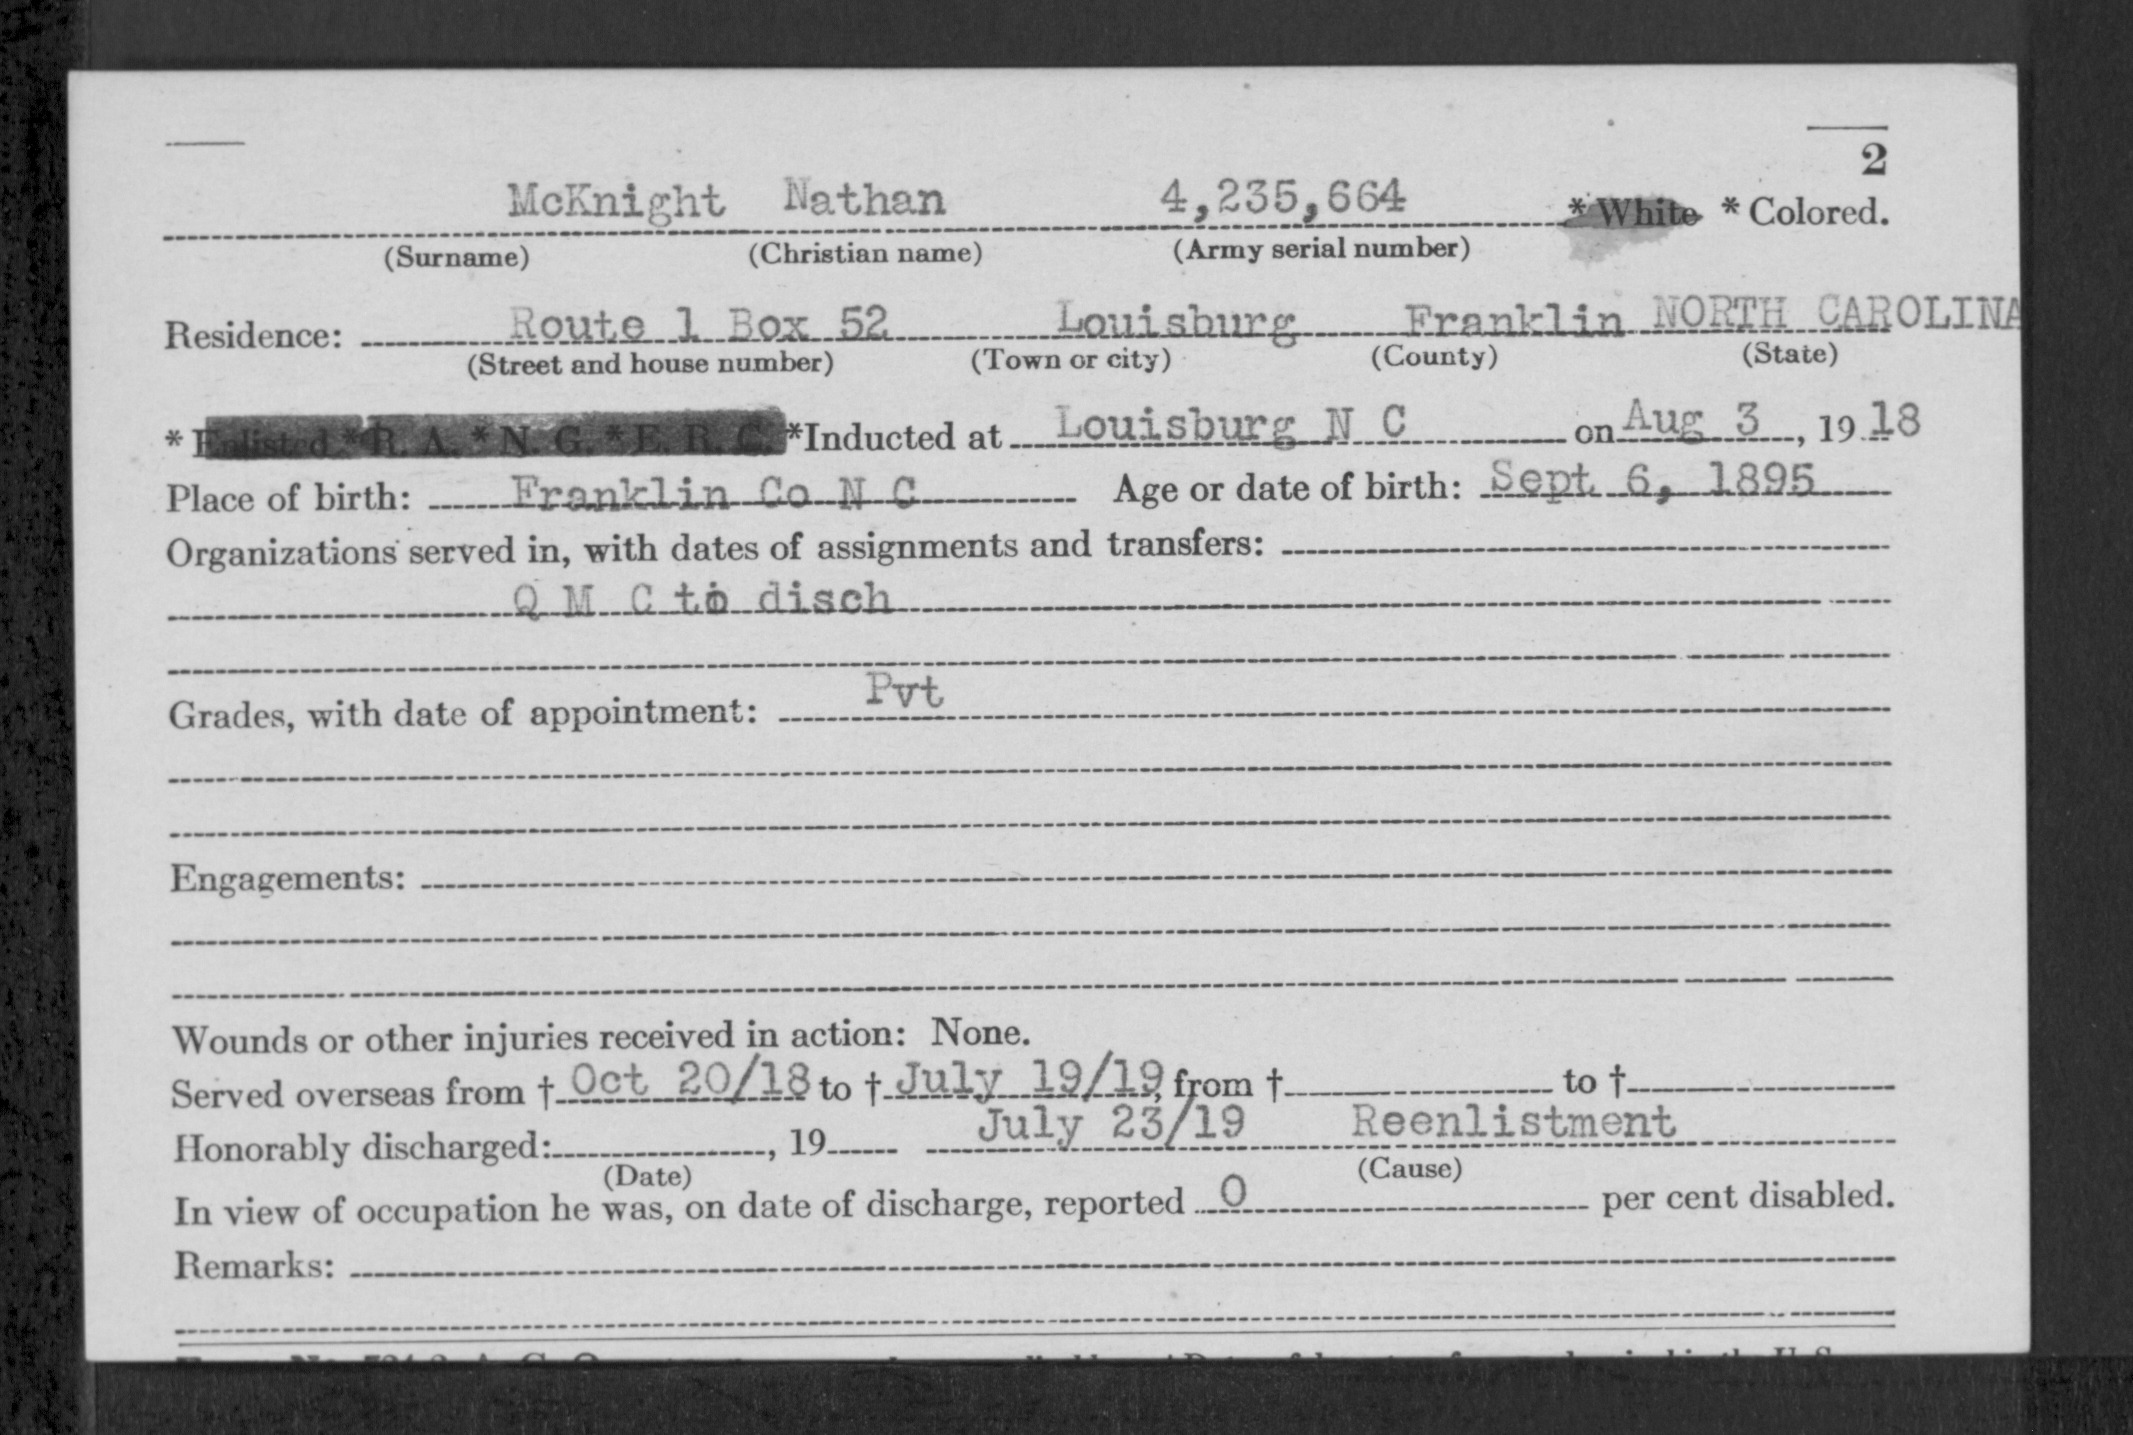 2
McKnight Nathan 4,235,664 * White * Colored.
(Surname) (Christian name) (Army serial number)
Residence: Route 1 Box 52 Louisburg Franklin NORTH CAROLINA
(Street and house number) (Town or city) (County) (State)
* Enlisted * R. A. * N. G. * E. R. C. *Inducted at Louisburg N C on Aug 3, 1918
Place of birth: Franklin Co N C Age or date of birth: Sept 6, 1895
Organizations served in, with dates of assignments and transfers:
Q M C to disch
Grades, with date of appointment: Pvt
Engagements:
Wounds or other injuries received in action: None.
Served overseas from † Oct 20/18 to † July 19/19, from † to †
Honorably discharged: , 19 July 23/19 Reenlistment
(Date) (Cause)
In view of occupation he was, on date of discharge, reported 0 per cent disabled.
Remarks: